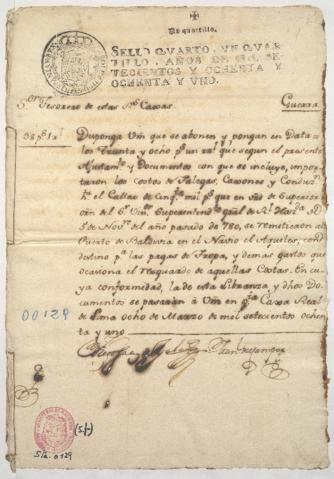 Un quartillo.
SELLO QUARTO, UN QUAR-
TILLO, AÑOS DE MIL SE-
TECIENTOS Y OCHENTA Y
OCHENTA Y UNO.
Sor Tesorero de estas Rs Caxas. Guerra
38 ps 1 rl Disponga Vm que se abonen y pongan en Data
los treinta y ocho ps un rl que segun el presente
Ajustamto y Documentos con que se incluye, impor-
taron los costos de Talegas, Caxones y Conduzn
al Callao de Cinqta mil ps que en vd de Superior
orn del Sr Supeintente gral de Rl Hazda
5 de Novre del año pasado de 780, se remitieron al
Puerto de Baldivia en el Navio el Aquiles, con
destino pa las pagas de Tropa, y demas gastos que
ocasiona el resguardo de aquellas Costas. En cu-
ya conformidad, la de esta Libranza, y dhos Do-
cumentos se pasarán á Vm en Caxa Real
de Lima ocho de Marzo de mil setecientos ochen-
ta y uno
00129
(s/)
Sta. 0129